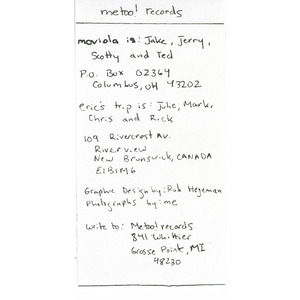 metoo! records
moviola is: Jake, Jerry,
Scotty and Ted
P.O. Box 02364
Columbus, OH 43202
eric's trip is: Julie, Mark,
Chris and Rick
109 Rivercrest Av.
Riverview
New Brunswick, CANADA
E1B1M6
Graphic Design by: Rob Hegeman
Photographs by: me
Write to: Metoo! records
841 Whittier
Grosse Point, MI
48230